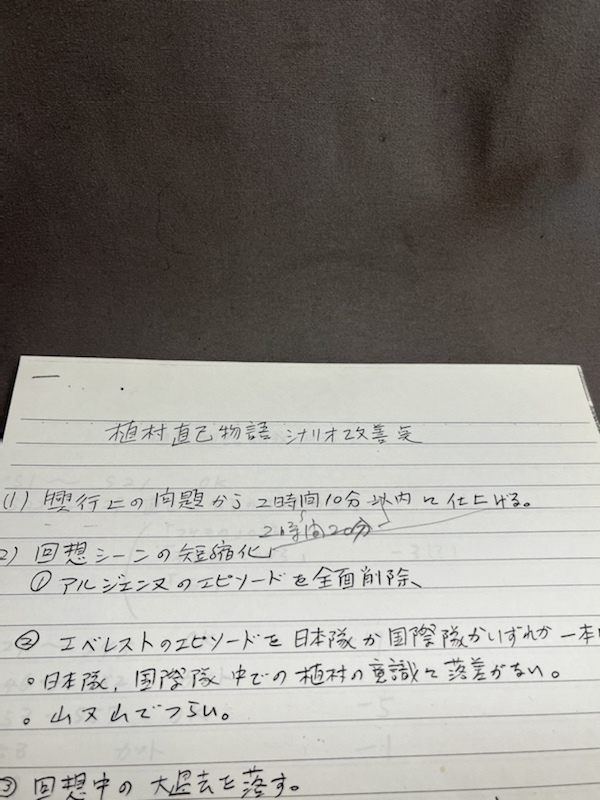 一
植村直己物語 シナリオ改善点
(1) 興行上の問題から2時間10分以内に仕上げる。
2時間20分
2) 回想シーンの短縮化
① アルジェンヌのエピソードを全面削除、
② エベレストのエピソードを日本隊か国際隊かいずれか一本
。日本隊、国際隊中での植村の意識に落差がない。
。山又山でつらい。
③ 回想中の大過去を落す。